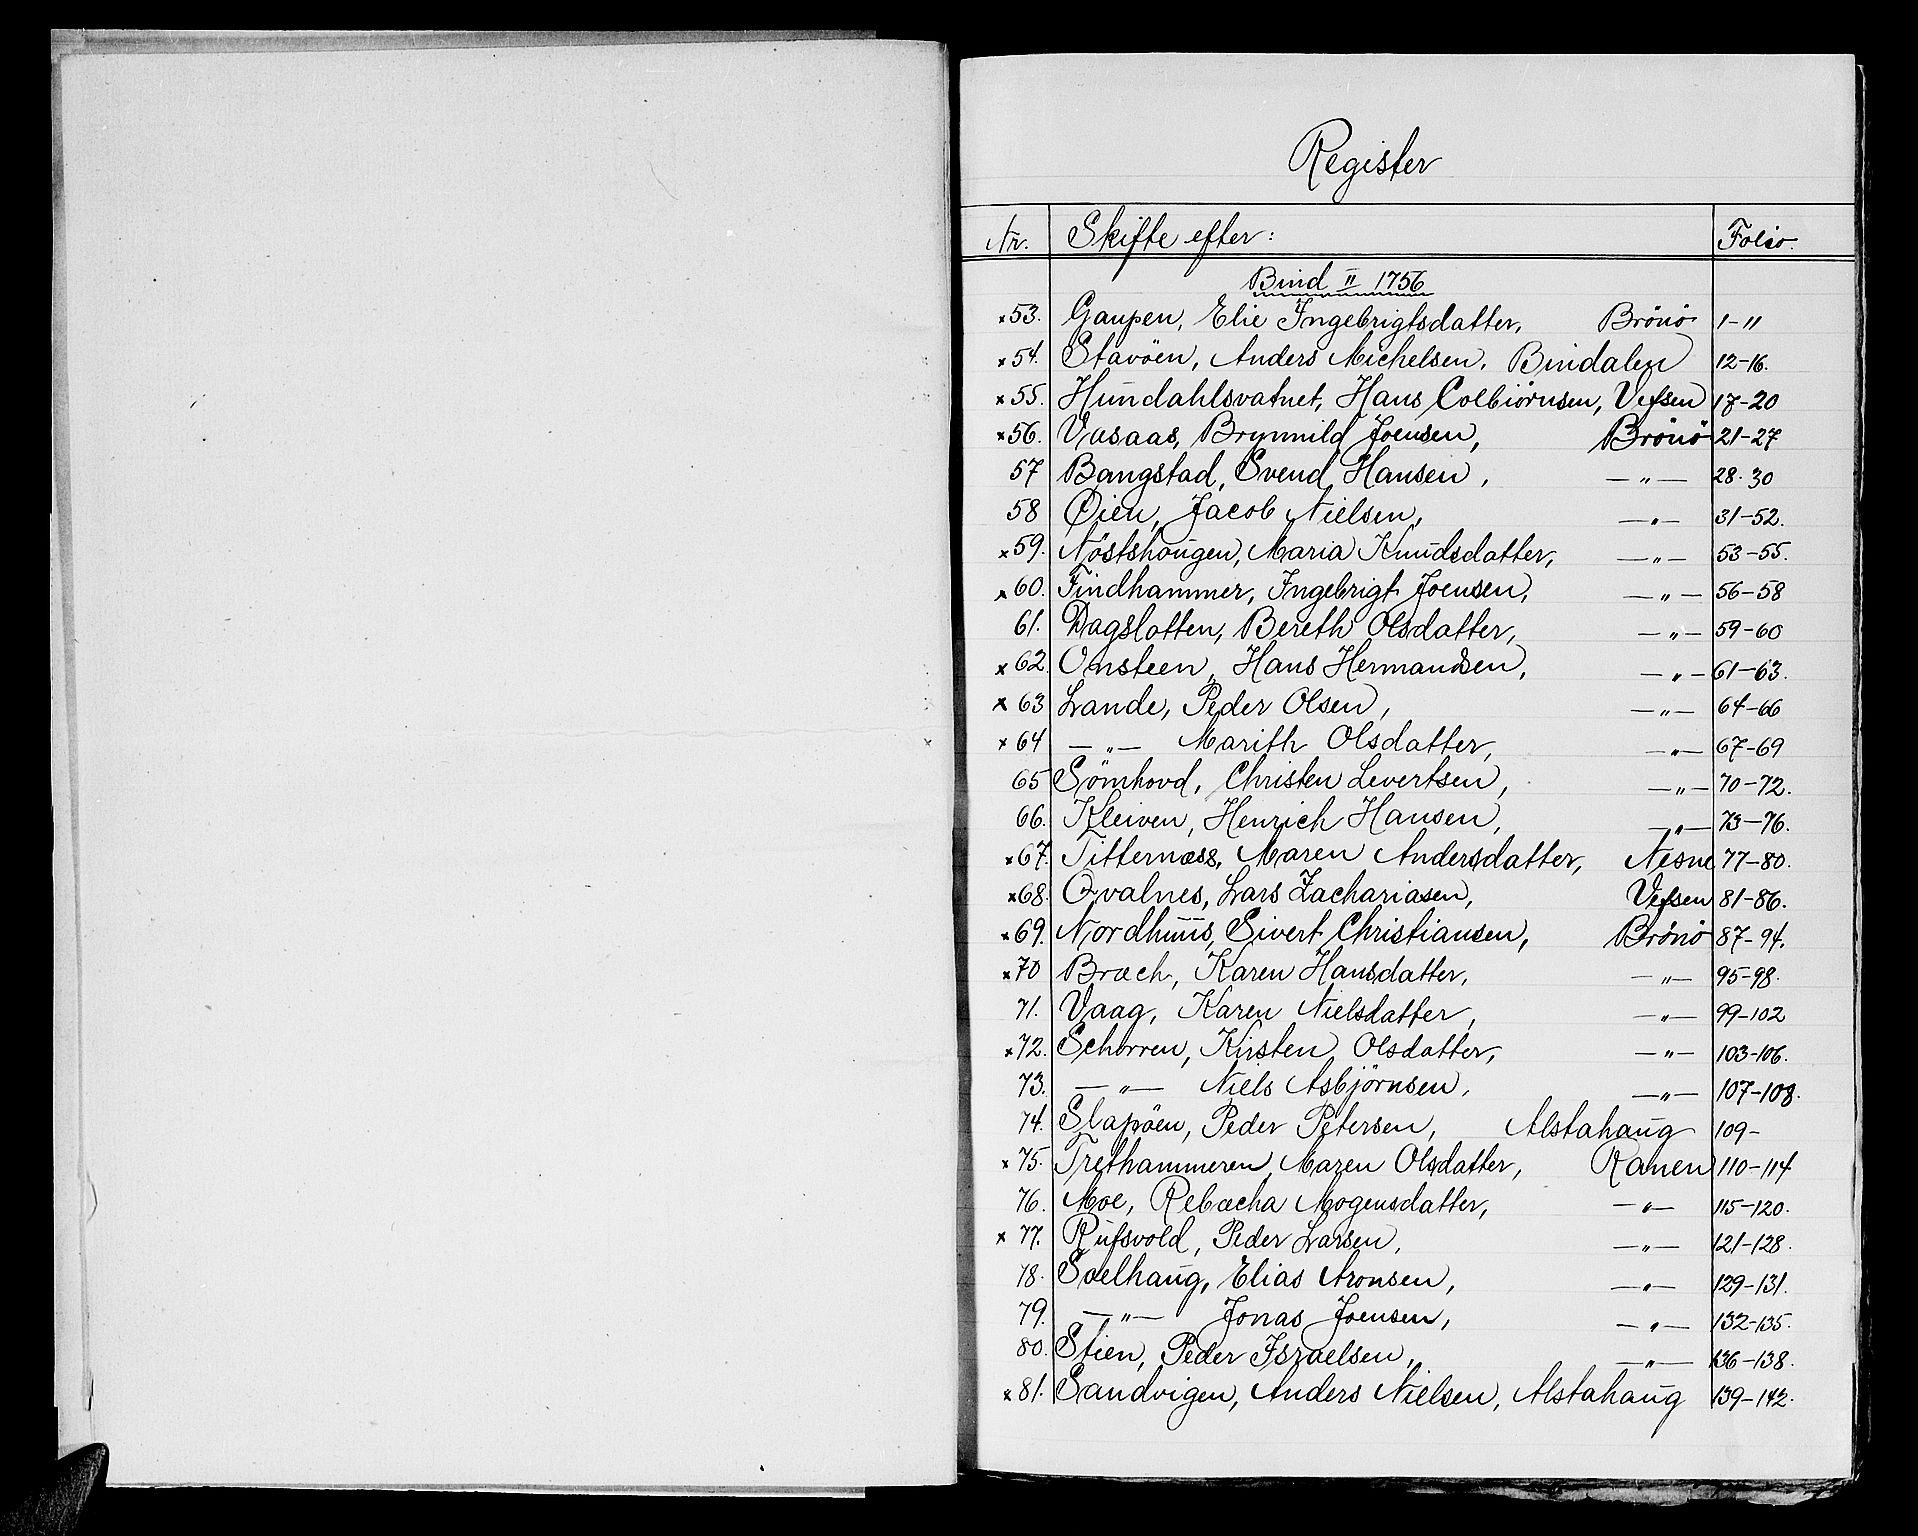 Register
Nr. Skifte efter: Folio.
Bind II 1756
×53. Gaupen, Elie Ingebrigtsdatter, Brönö 1-11
×54. Stavöen, Anders Michelsen, Bindalen 12-16.
×55. Hundahlsvatnet, Hans Colbiörnsen, Vefsen 17-20
×56. Vasaas, Brynnild Joensen, Brönö 21-27
57 Bangstad, Svend Hansen, —„— 28-30
58 Öien, Jacob Nielsen, —„— 31-52.
×59. Nöstshaugen, Maria Knudsdatter, —„— 53-55.
×60. Findhammer, Ingebrigt Joensen, —„— 56-58
61. Dagslotten, Bereth Olsdatter, —„— 59-60
×62 Onsteen, Hans Hermandsen, —„— 61-63.
×63 Lande, Peder Olsen, —„— 64-66
×64 —„— Marith Olsdatter, —„— 67-69
65 Sömhovd, Christen Levertsen, —„— 70-72.
66. Kleiven, Henrich Hansen, —„— 73-76.
×67. Titternæss, Maren Andersdatter, Nesne 77-80.
×68. Qvalnes, Lars Zachariasen, Vefsen 81-86.
×69. Nordhuus, Sivert Christiansen, Brönö 87-94.
×70 Bræch, Karen Hansdatter, —„— 95-98.
71. Vaag, Karen Nielsdatter, —„— 99-102
×72. Schorren, Kirsten Olsdatter, —„— 103-106.
73. —„— Niels Asbjörnsen, —„— 107-108.
74. Slapöen, Peder Petersen, Alstahaug 109-
×75. Trethammeren, Maren Olsdatter, Ranen 110-114
76. Moe, Rebæcha Mogensdatter, —„— 115-120.
×77. Rufsvold, Peder Larsen, —„— 121-128.
78. Soelhaug, Elias Aronsen, —„— 129-131.
79. —„— Jonas Joensen, —„— 132-135.
80. Stien, Peder Israelsen, —„— 136-138.
×81. Sandvigen, Anders Nielsen, Alstahaug 139-142.